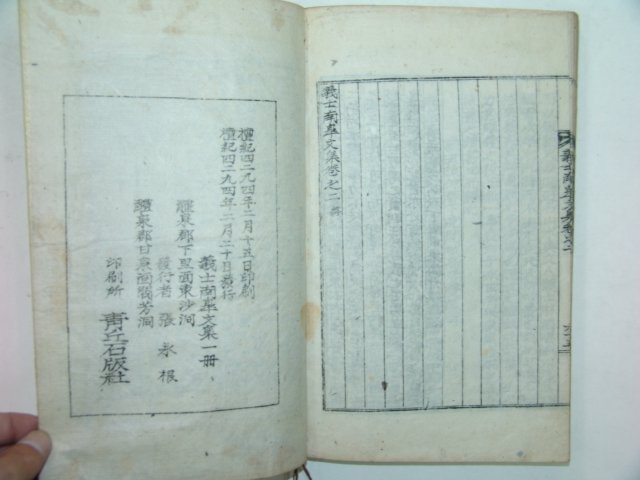 義士南皐文集卷之二
義士南皐文集卷之二終
檀紀四二九四年二月十五日印刷
檀紀四二九四年二月二十日發行
義士南皐文集一册
醴泉郡下里面東沙洞
發行者 張永根
醴泉郡甘泉面閥芳洞
印刷所 青丘石版社